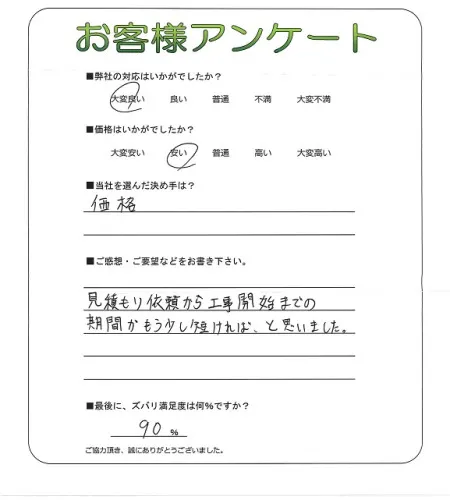 お客様アンケート
■弊社の対応はいかがでしたか？
大変良い 良い 普通 不満 大変不満
■価格はいかがでしたか？
大変安い 安い 普通 高い 大変高い
■当社を選んだ決め手は？
価格
■ご感想・ご要望などをお書き下さい。
見積もり依頼から工事開始までの
期間がもう少し短ければ、と思いました。
■最後に、ズバリ満足度は何%ですか？
90 %
ご協力頂き、誠にありがとうございました。